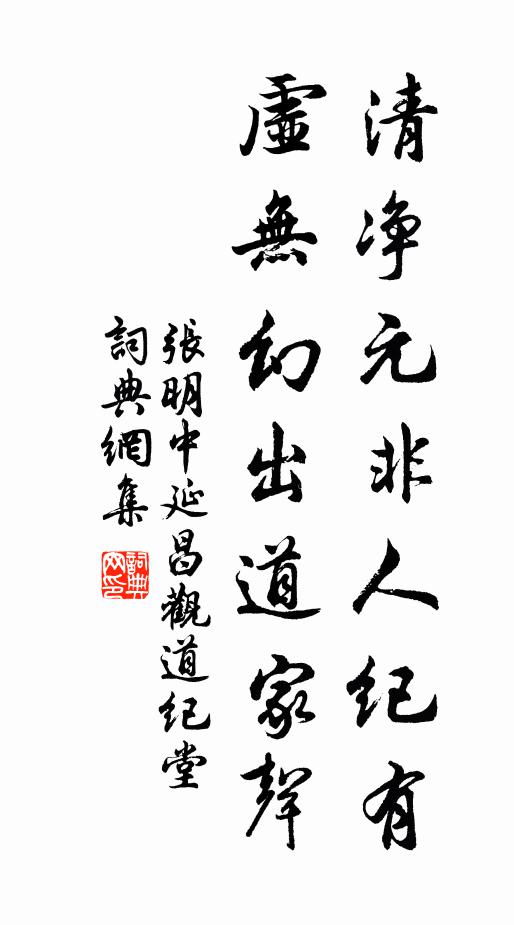 清净元非人纪有
虛無幻出道家聲
張明中延昌觀道纪堂
詞典網集
詞典
网印